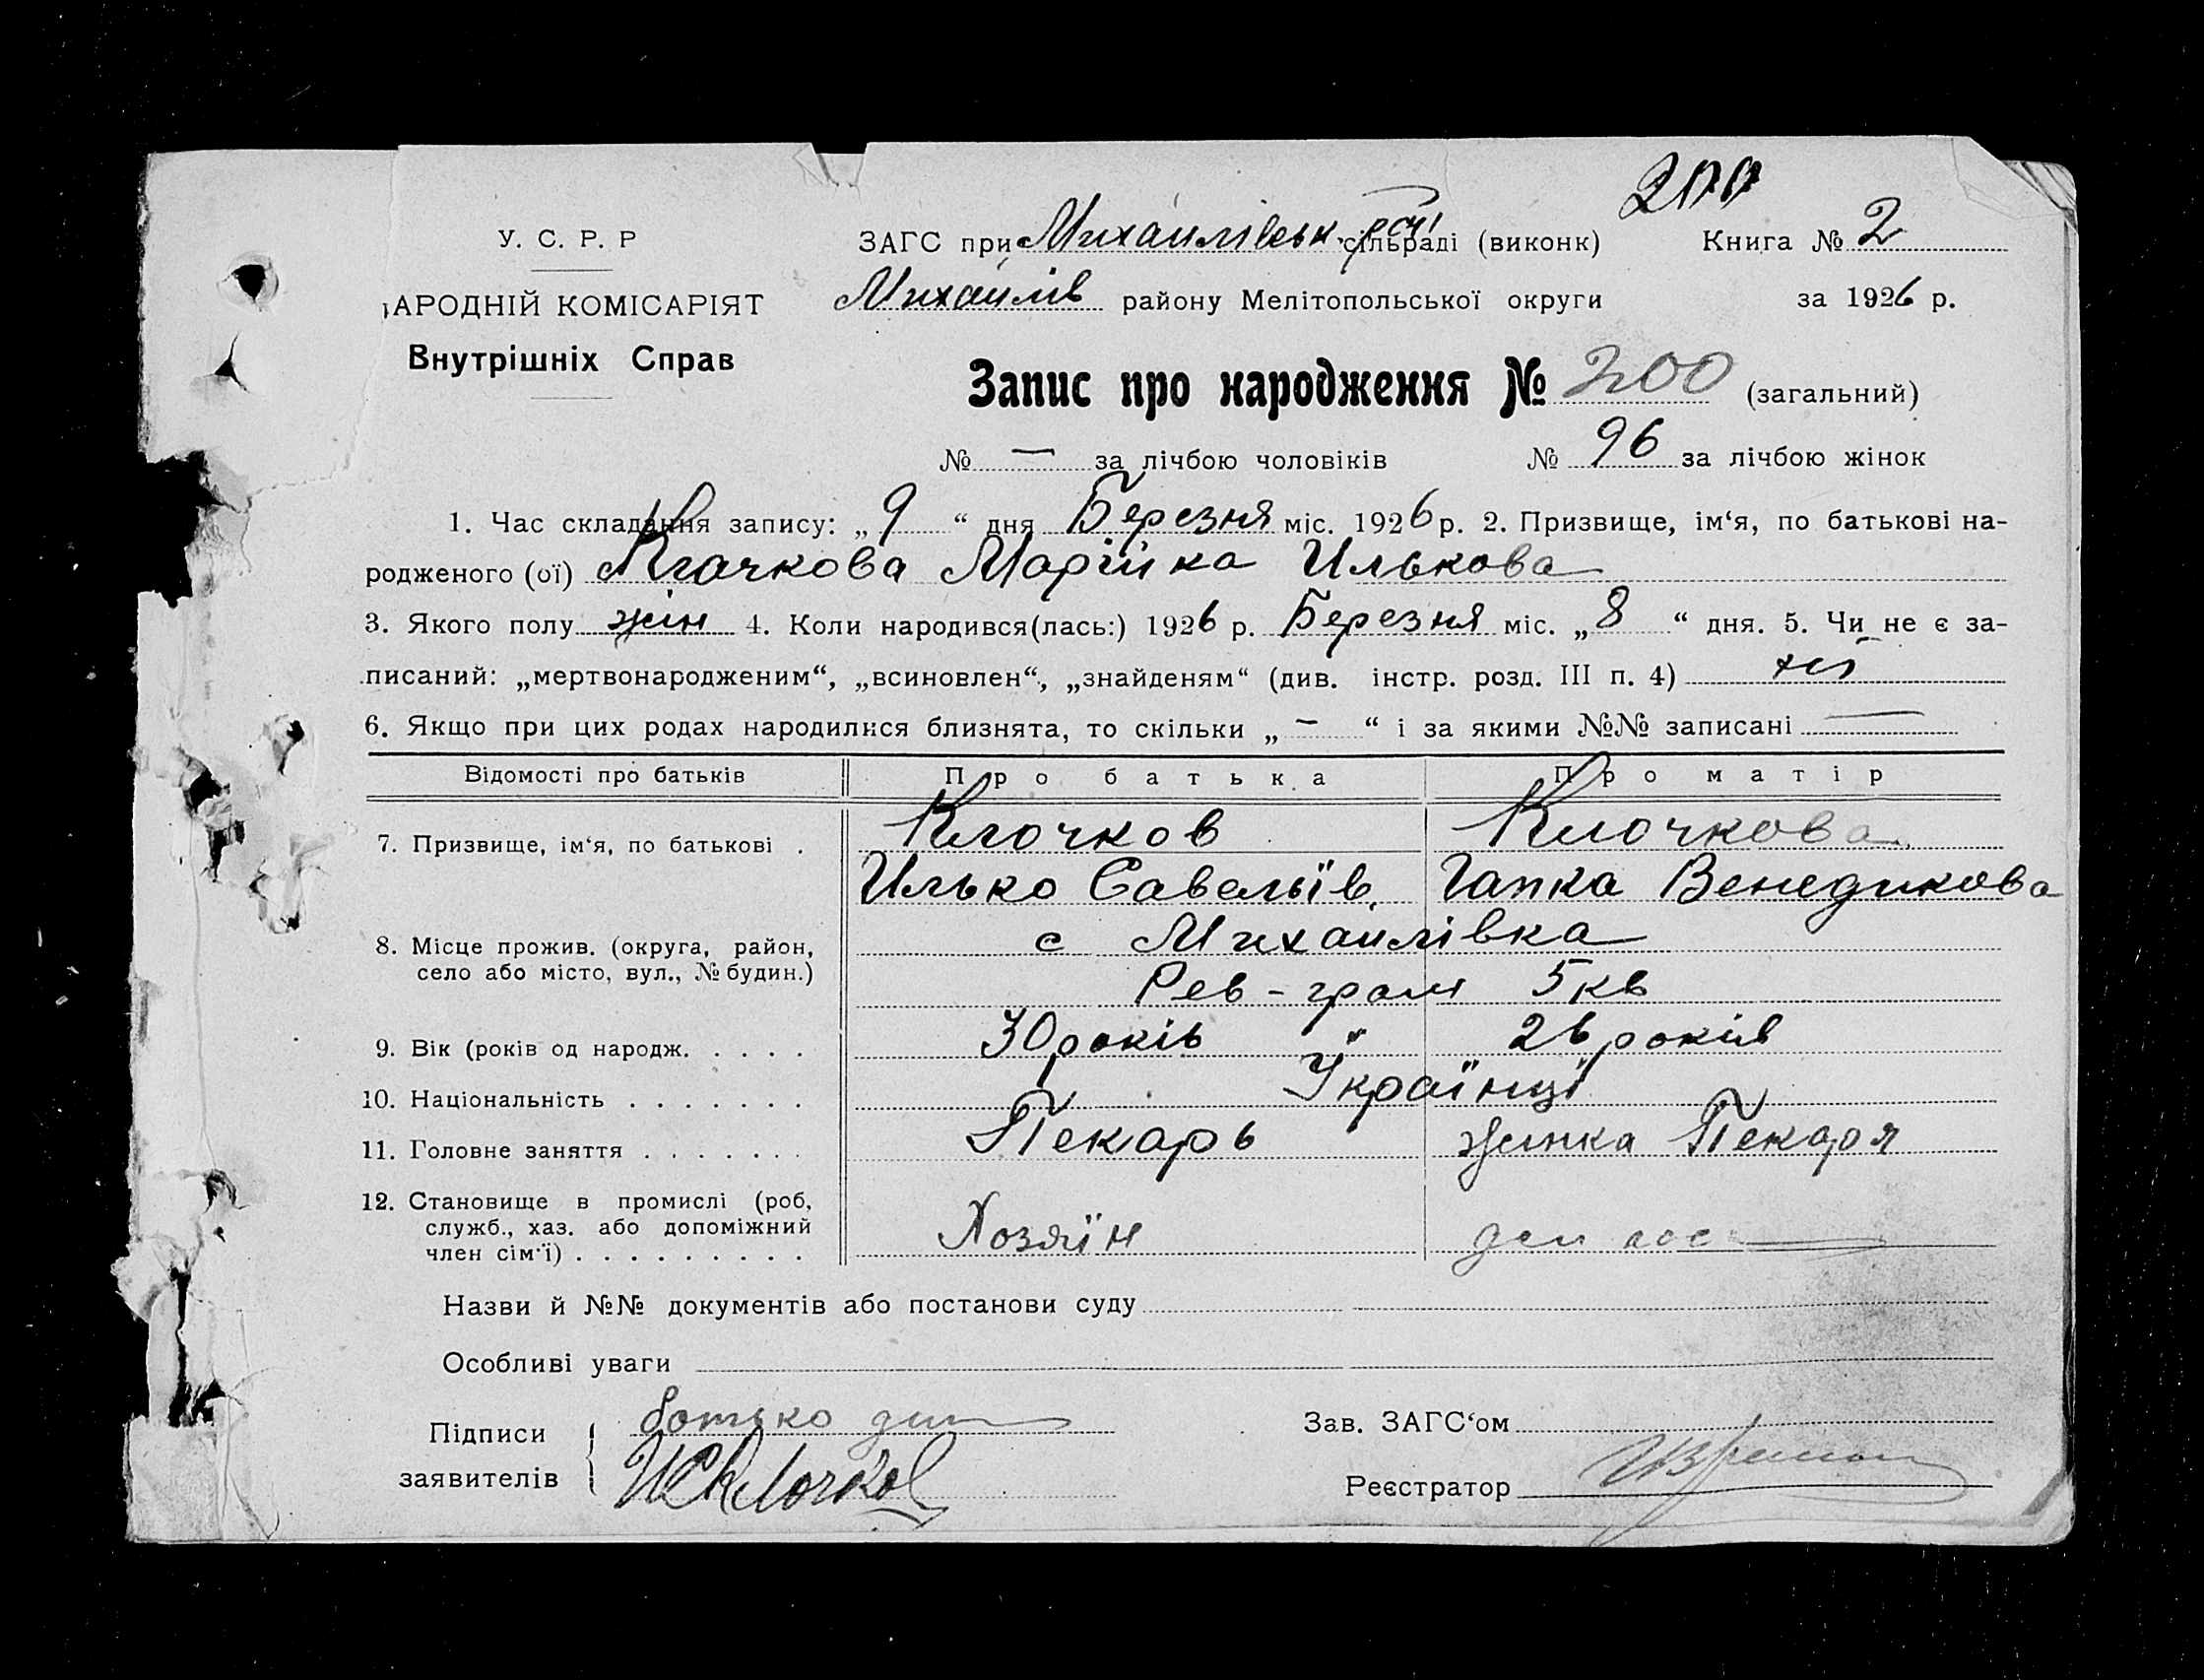 200
У. С. Р. Р
ЗАГС при Михайлівськ сільраді (виконк)
Книга № 2
АРОДНІЙ КОМІСАРІЯТ
Михайлів району Мелітопольської округи
за 1926 р.
Внутрішніх Справ
Запис про народження № 200 (загальний)
№ — за лічбою чоловіків № 96 за лічбою жінок
1. Час складання запису: „ 9 “ дня Березня міс. 1926 р. 2. Призвище, ім‘я, по батькові на-
родженого (ої) Клочкова Марійка Илькова
3. Якого полу жін 4. Коли народився(лась:) 1926 р. Березня міс. „ 8 “ дня. 5. Чи не є за-
писаний: „мертвонародженим“, „всиновлен“, „знайденям“ (див. інстр. розд. III п. 4) ні
6. Якщо при цих родах народилися близнята, то скільки „ — “ і за якими №№ записані —
Відомості про батьків Про батька Про матір
7. Призвище, ім‘я, по батькові . Клочков Клочкова
Илько Савельїв. Гапка Венедикова
8. Місце прожив. (округа, район, с Михайлівка
село або місто, вул., № будин.) Рев - гром 5 кв
9. Вік (років од народж. . . . . 30 років " 26 років
10. Національність . . . . . . . Українці
11. Головне заняття . . . . . . . Пекарь жинка Пекаря
12. Становище в промислі (роб,
служб., хаз. або допоміжний Хозяїн
член сім‘ї) . . . . . . . . .
Назви й №№ документів або постанови суду
Особливі уваги
Підписи батько
заявителів И С Клочков
Зав. ЗАГС‘ом
Реєстратор